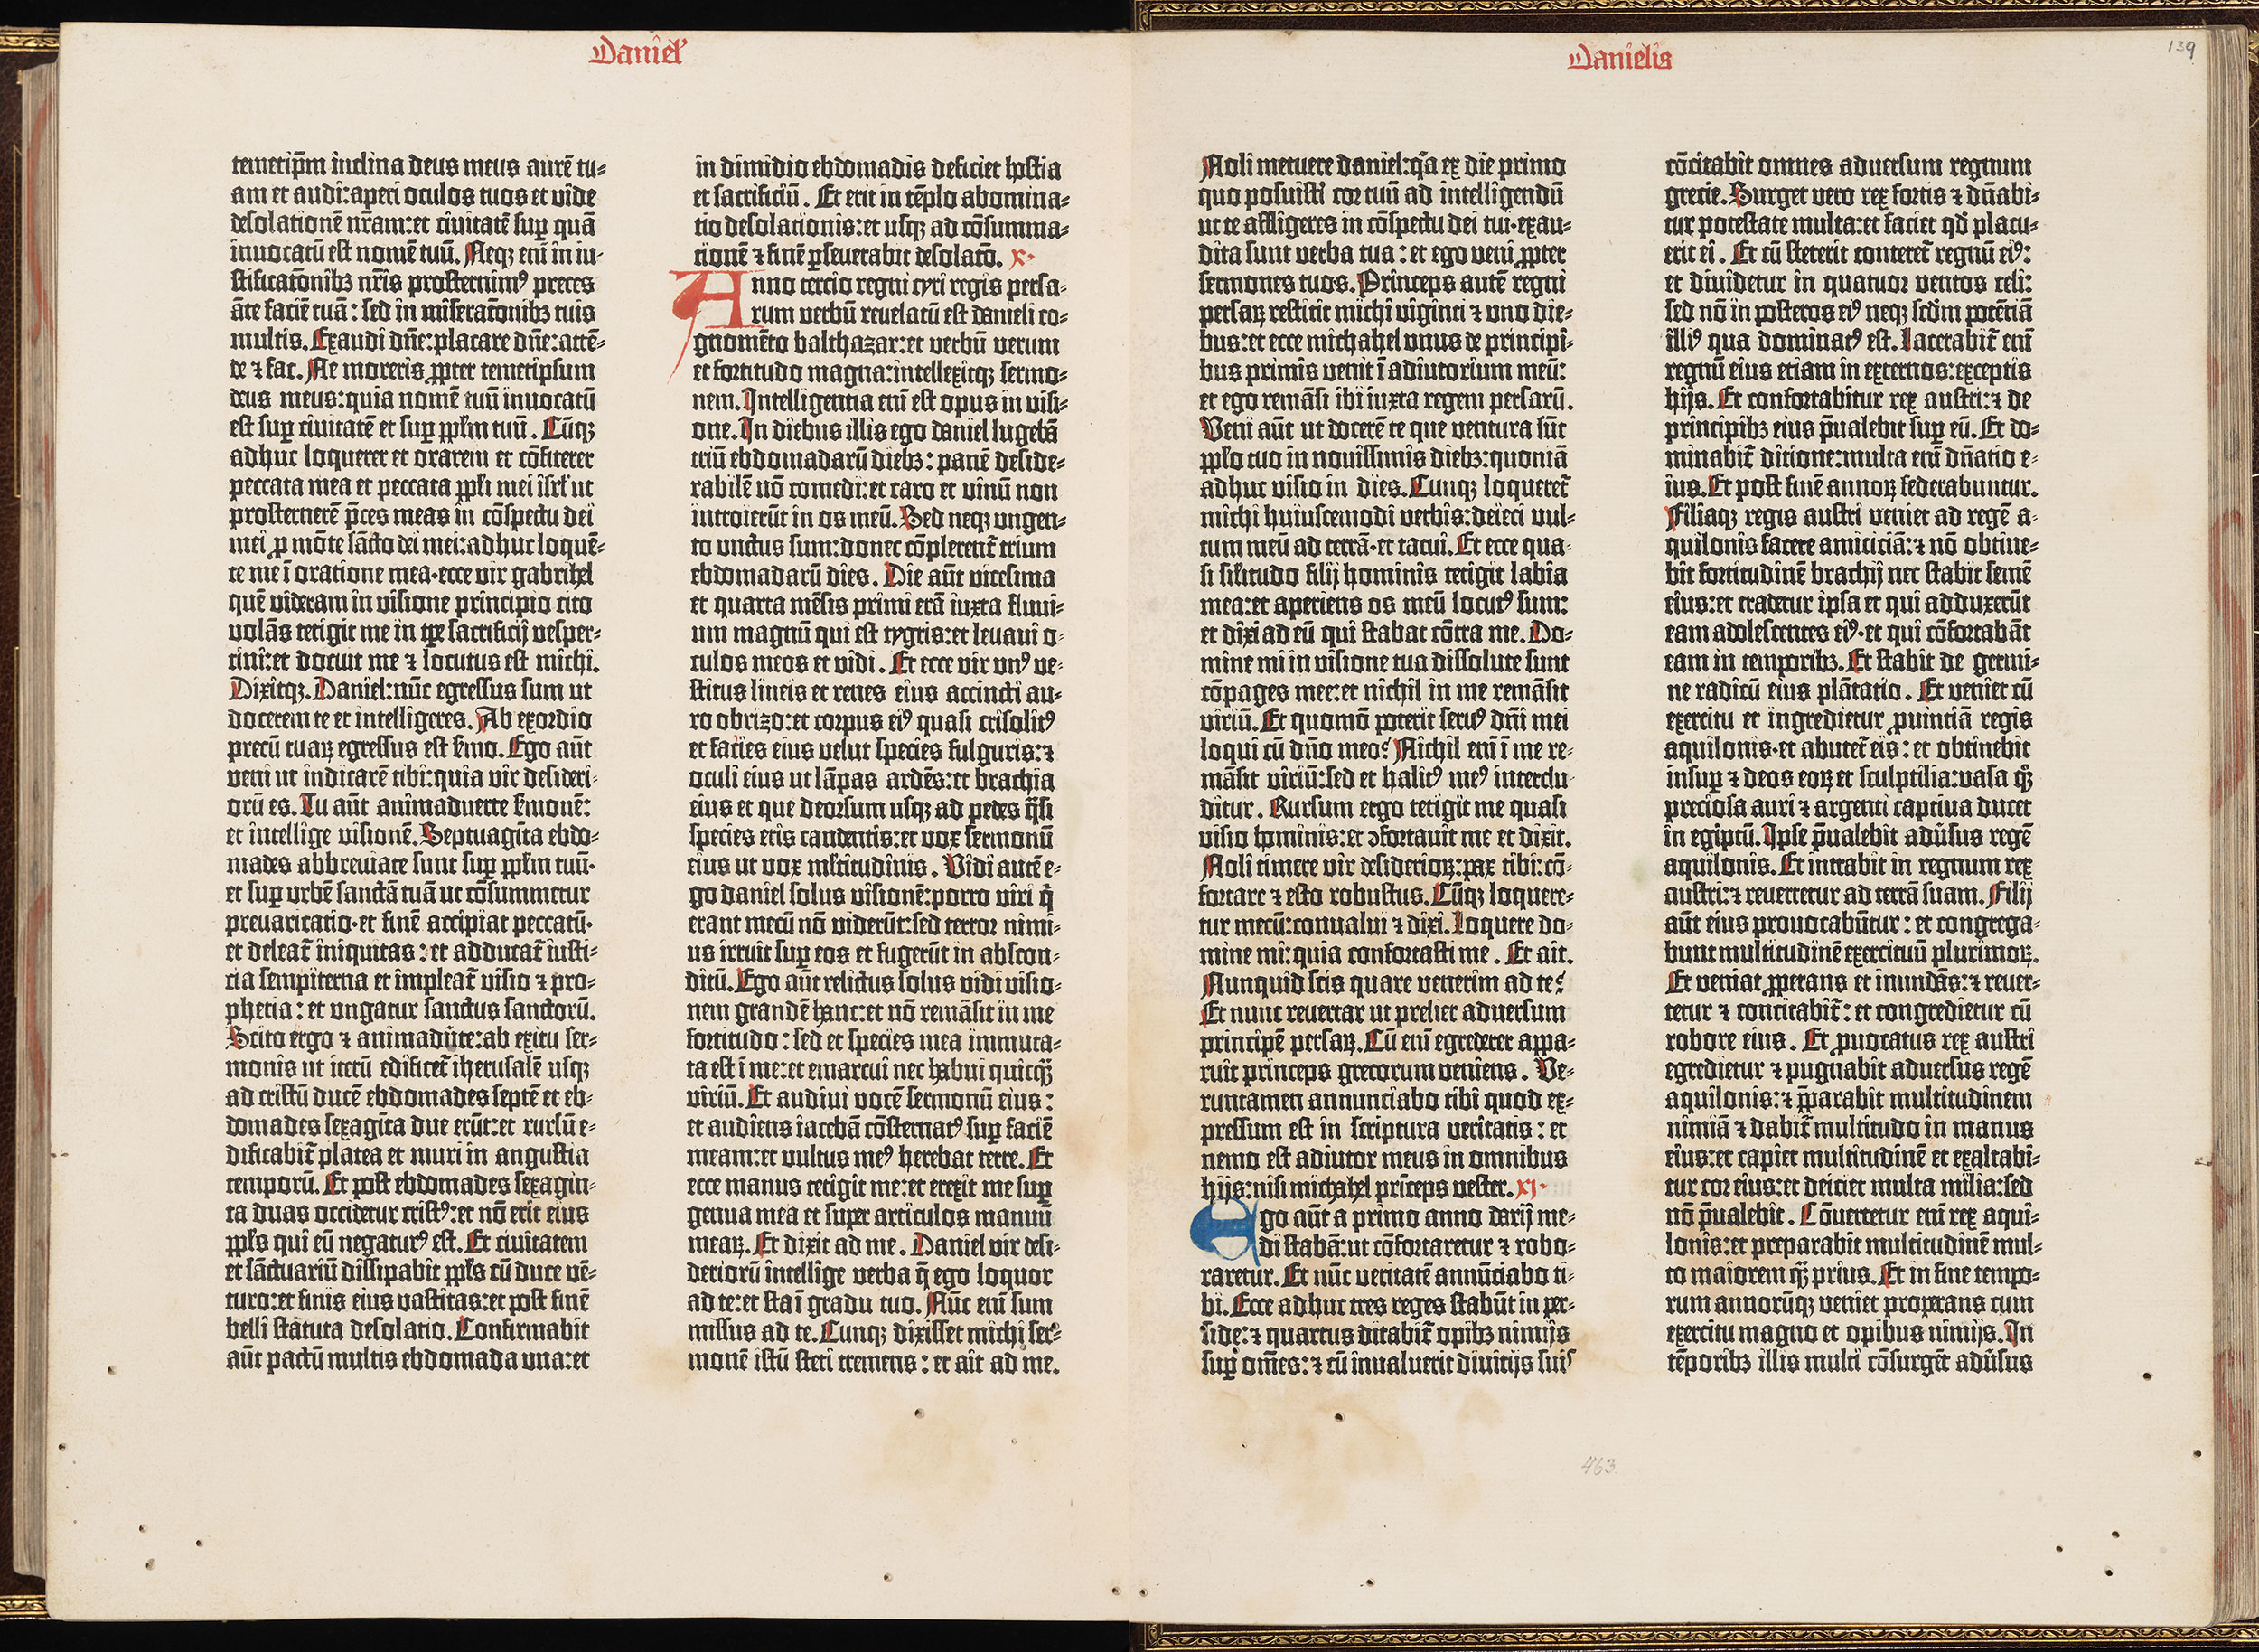 Daniel'
temetip̄m inclina deus meus aurē tu-
am et audi:aperi oculos tuos et vide
desolationē nr̄am:et civitatē sup̲ quā
invocatū est nomē tuū. Neqꝫ eni in iu-
stificatōnibꝫ nr̄is prosternimꝰ preces
āte faciē tuā: sed in miseratōnibꝫ tuis
multis. Exaudi dn̄e:placare dn̄e:attē-
de ⁊ fac. Ne moreris ꝓpter temetipsum
deus meus:quia nomē tuū invocatū
est sup̲ civitatē et sup̲ pp̄lm tuū. Cūqꝫ
adhuc loquerer et orarem et cōfiterer
peccata mea et peccata pp̄li mei isrl' ut
prosternerē p̄ces meas in cōspectu dei
mei ꝓ mōte sācto dei mei:adhuc loquē-
te me ī oratione mea·ecce vir gabrihel
quē videram in visione principio cito
volās tetigit me in tp̄e sacrificij vesper-
tini:et docuit me ⁊ locutus est michi.
Dixitqꝫ. Daniel:nūc egressus sum ut
docerem te et intelligeres. Ab exordio
precū tuaꝝ egressus est s̄mo. Ego aūt
veni ut indicarē tibi:quia vir desideri-
orū es. Tu aūt animadverte s̄monē:
et intellige visionē. Septuagīta ebdo-
mades abbreviate sunt sup̲ pp̄lm tuū·
et sup̲ urbē sanctā tuā ut cōsummetur
prevaricatio·et finē accipiat peccatū·
et deleat̄ iniquitas:et adducat̄ iusti-
cia sempiterna et impleat̄ visio ⁊ pro-
phetia:et ungatur sanctus sanctorū.
Scito ergo ⁊ animadūte:ab exitu ser-
monis ut iterū edificet̄ iherusalē usqꝫ
ad cristū ducē ebdomades septē et eb-
domades sexagīta due erūt:et rursū e-
dificabit̄ platea et muri in angustia
temporū. Et post ebdomades sexagin-
ta duas occidetur cristꝰ:et nō erit eius
pp̄ls qui eū negaturꝰ est. Et civitatem
et sāctuariū dissipabit pp̄ls cū duce vē-
turo:et finis eius vastitas:et post finē
belli statuta desolatio. Confirmabit
aūt pactū multis ebdomada una:et
in dimidio ebdomadis deficiet hostia
et sacrificiū. Et erit in tēplo abomina-
tio desolationis:et usqꝫ ad cōsumma-
tionē ⁊ finē ꝑseverabit desolatō. x·
Anno tercio regni cyri regis persa-
rum verbū revelatū est danieli co-
gnomēto balthazar:et verbū verum
et fortitudo magna:intellexitqꝫ sermo-
nem. Intelligentia eni est opus in visi-
one. In diebus illis ego daniel lugebā
triū ebdomadarū diebꝫ: panē deside-
rabilē nō comedi:et caro et vinū non
introierūt in os meū. Sed neqꝫ ungen-
to unctus sum:donec cōplerent̄ trium
ebdomadarū dies. Die aūt vicesima
et quarta mēsis primi erā iuxta fluvi-
um magnū qui est tygris:et levavi o-
culos meos et vidi. Et ecce vir unꝰ ve-
stitus lineis et renes eius accincti au-
ro obrizo:et corpus eiꝰ quasi crisolitꝰ
et facies eius velut species fulguris:⁊
oculi eius ut lāpas ardēs:et brachia
eius et que deorsum usqꝫ ad pedes q̄si
species eris candentis:et vox sermonū
eius ut vox ml̄titudinis. Vidi autē e-
go daniel solus visionē:porro viri q̄
erant mecū nō viderūt:sed terror nimi-
us irruit sup̲ eos et fugerūt in abscon-
ditū. Ego aūt relictus solus vidi visio-
nem grandē hanc:et nō remāsit in me
fortitudo: sed et species mea immuta-
ta est ī me:et emarcui nec habui quicqꝫ̄
viriū. Et audivi vocē sermonū eius:
et audiens iacebā cōsternatꝰ sup̲ faciē
meam:et vultus meꝰ herebat terre. Et
ecce manus tetigit me:et erexit me sup̲
genua mea et super articulos manuū
meaꝝ. Et dixit ad me. Daniel vir desi-
deriorū intellige verba q̄ ego loquor
ad te:et sta ī gradu tuo. Nūc eni sum
missus ad te. Cunqꝫ dixisset michi ser-
monē istū steti tremens: et ait ad me.
Danielis
139
Noli metuere daniel:q̄a ex die primo
quo posuisti cor tuū ad intelligendū
ut te affligeres in cōspectu dei tui·exau-
dita sunt verba tua: et ego veni ꝓpter
sermones tuos. Princeps autē regni
persaꝝ restitit michi viginti ⁊ uno die-
bus:et ecce michahel unus de principi-
bus primis venit ī adiutorium meū:
et ego remāsi ibi iuxta regem persarū.
Veni aūt ut docerē te que ventura sūt
pp̄lo tuo in novissimis diebꝫ:quoniā
adhuc visio in dies. Cunqꝫ loqueret̄
michi huiuscemodi verbis:deieci vul-
tum meū ad terrā·et tacui. Et ecce qua-
si sil'itudo filij hominis tetigit labia
mea:et aperiens os meū locutꝰ sum:
et dixi ad eū qui stabat cōtra me. Do-
mine mi in visione tua dissolute sunt
cōpages mee:et nichil in me remāsit
viriū. Et quomō poterit servꝰ dn̄i mei
loqui cū dn̄o meo? Nichil eni ī me re-
māsit viriū:sed et halitꝰ meꝰ interclu-
ditur. Rursum ergo tetigit me quasi
visio hominis:et ɔfortavit me et dixit.
Noli timere vir desiderioꝝ:pax tibi:cō-
fortare ⁊ esto robustus. Cūqꝫ loquere-
tur mecū:convalui ⁊ dixi. Loquere do-
mine mi:quia confortasti me. Et ait.
Nunquid scis quare venerim ad te?
Et nunc revertar ut prelier adversum
principē persaꝝ. Cū eni egrederer appa-
ruit princeps grecorum veniens. Ve-
runtamen annunciabo tibi quod ex-
pressum est in scriptura veritatis: et
nemo est adiutor meus in omnibus
hijs:nisi michahel prīceps vester. xj·
Ego aūt a primo anno darij me-
di stabā:ut cōfortaretur ⁊ robo-
raretur. Et nūc veritatē annūciabo ti-
bi. Ecce adhuc tres reges stabūt in per-
side:⁊ quartus ditabit̄ opibꝫ nimijs
sup̲ om̄es:⁊ cū invaluerit divitijs suis
cōcitabit omnes adversum regnum
grecie. Surget vero rex fortis ⁊ dn̄abi-
tur potestate multa:et faciet qd̄ placu-
erit ei. Et cū steterit conteret̄ regnū eiꝰ:
et dividetur in quatuor ventos celi:
sed nō in posteros eiꝰ neqꝫ scd̄m potētiā
illiꝰ qua dominatꝰ est. Lacerabit̄ eni
regnū eius etiam in externos:exceptis
hijs. Et confortabitur rex austri:⁊ de
principibꝫ eius p̄valebit sup̲ eū. Et do-
minabit̄ ditione:multa eni dn̄atio e-
ius. Et post finē annoꝝ federabuntur.
Filiaqꝫ regis austri veniet ad regē a-
quilonis facere amiciciā:⁊ nō obtine-
bit fortitudinē brachij nec stabit semē
eius:et tradetur ipsa et qui adduxerūt
eam adolescentes eiꝰ·et qui cōfortabāt
eam in temporibꝫ. Et stabit de germi-
ne radicū eius plātatio. Et veniet cū
exercitu et ingredietur ꝓvinciā regis
aquilonis·et abutet̄ eis: et obtinebit
insup̲ ⁊ deos eoꝝ et sculptilia:vasa qꝫ
preciosa auri ⁊ argenti captiva ducet
in egiptū. Ipse p̄valebit adūsus regē
aquilonis. Et intrabit in regnum rex
austri:⁊ revertetur ad terrā suam. Filij
aūt eius provocabūtur: et congrega-
bunt multitudinē exercituū plurimoꝝ.
Et veniat ꝓperans et inundās:⁊ rever-
tetur ⁊ concitabit̄: et congredietur cū
robore eius. Et ꝓvocatus rex austri
egredietur ⁊ pugnabit adversus regē
aquilonis:⁊ p̄parabit multitudinem
nimiā ⁊ dabit̄ multitudo in manus
eius:et capiet multitudinē et exaltabi-
tur cor eius:et deiciet multa milia:sed
nō p̄valebit. Cōvertetur eni rex aqui-
lonis:et preparabit multitudinē mul-
to maiorem qꝫ̄ prius. Et in fine tempo-
rum annorūqꝫ veniet properans cum
exercitu magno et opibus nimijs. In
tēporibꝫ illis multi cōsurgēt adūsus
463